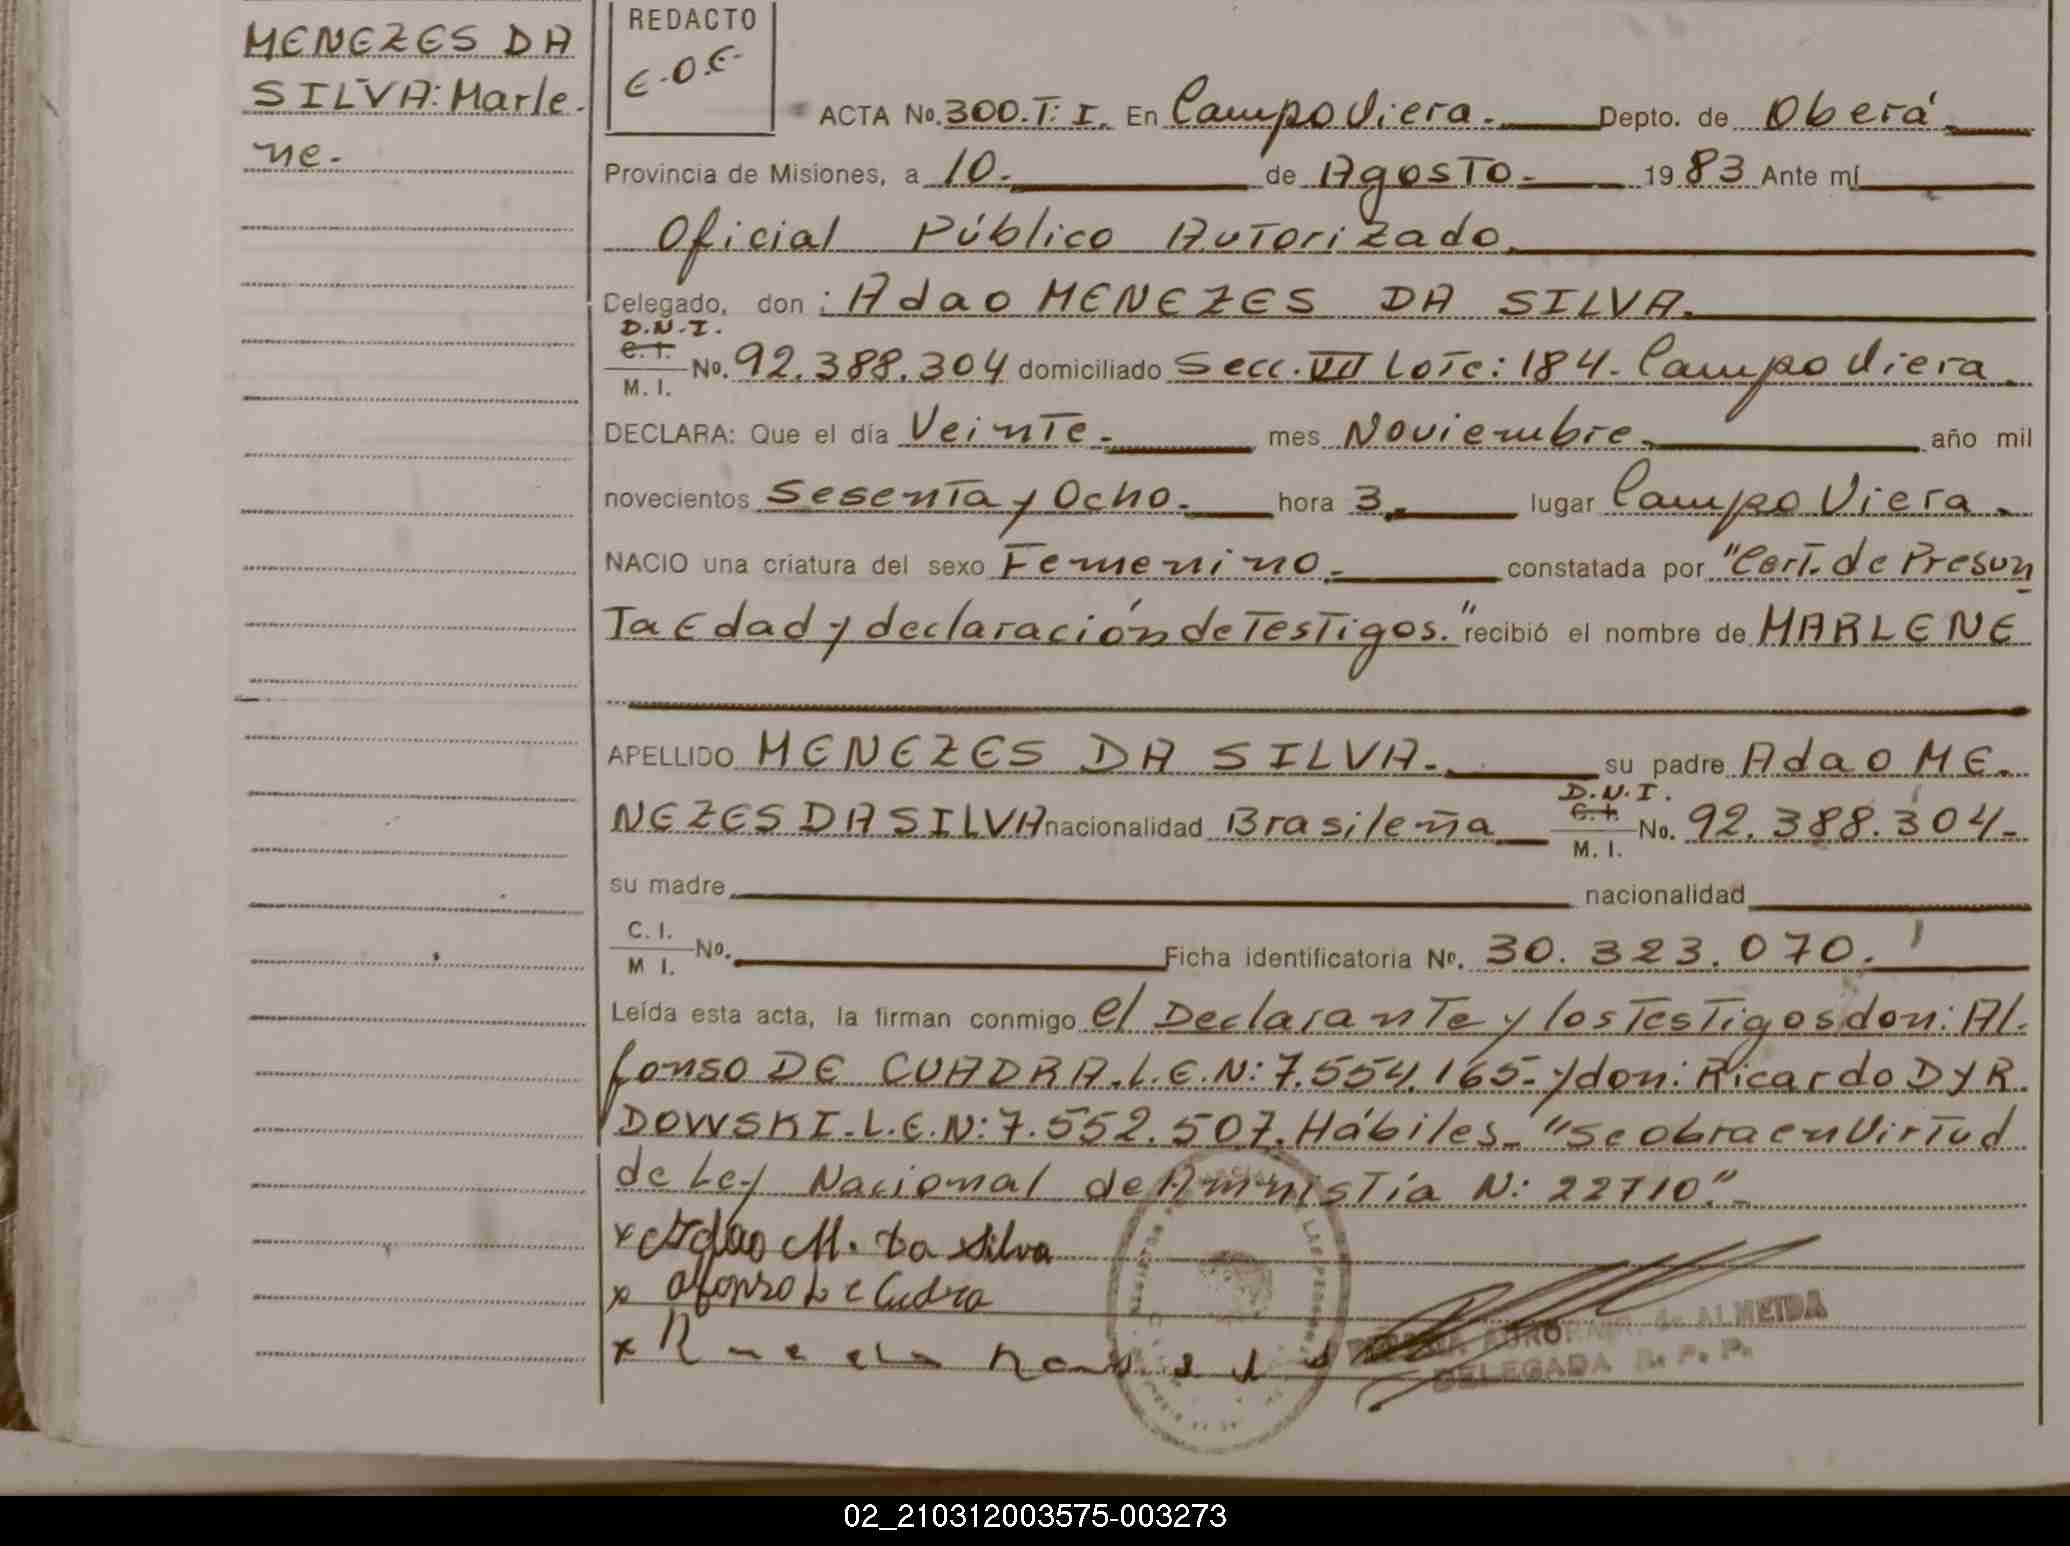 MENEZES DA
SILVA: Marle-
ne.-
REDACTO
E.O.E.
ACTA No. 300.T: I. En Campo Viera. Depto. de Oberá
Provincia de Misiones, a 10.- de Agosto.- 1983 Ante mí
Oficial Público Autorizado
Delegado, don: Adao MENEZES DA SILVA.
D.N.I.
C.I.
M. I.
No. 92.388.304 domiciliado Secc. VII Lote: 184. Campo Viera.
DECLARA: Que el día Veinte.- mes Noviembre. año mil
novecientos Sesenta y Ocho.- hora 3. lugar Campo Viera.
NACIO una criatura del sexo Femenino.- constatada por "Cert. de Presun
ta Edad y declaración de Testigos." recibió el nombre de MARLENE
APELLIDO MENEZES DA SILVA.- su padre Adao ME-
D.N.I.
NEZES DA SILVA nacionalidad Brasileña C.I. M. I. No. 92.388.304.-
su madre nacionalidad
C. I.
M I. No. Ficha identificatoria No. 30.323.070.
Leída esta acta, la firman conmigo el Declarante y los Testigos don: Al-
fonso DE CUADRA. L.E.N: 7.554.165.- y don: Ricardo DYR
DOWSKI. L.E.N: 7.552.507. Hábiles.- "Se obra en Virtud
de Ley Nacional de Amnistía N: 22710."-
x Adao M. Da Silva
x Afonso De Cudra
x
de ALMEIDA
DELEGADA R. P. P.
02_210312003575-003273